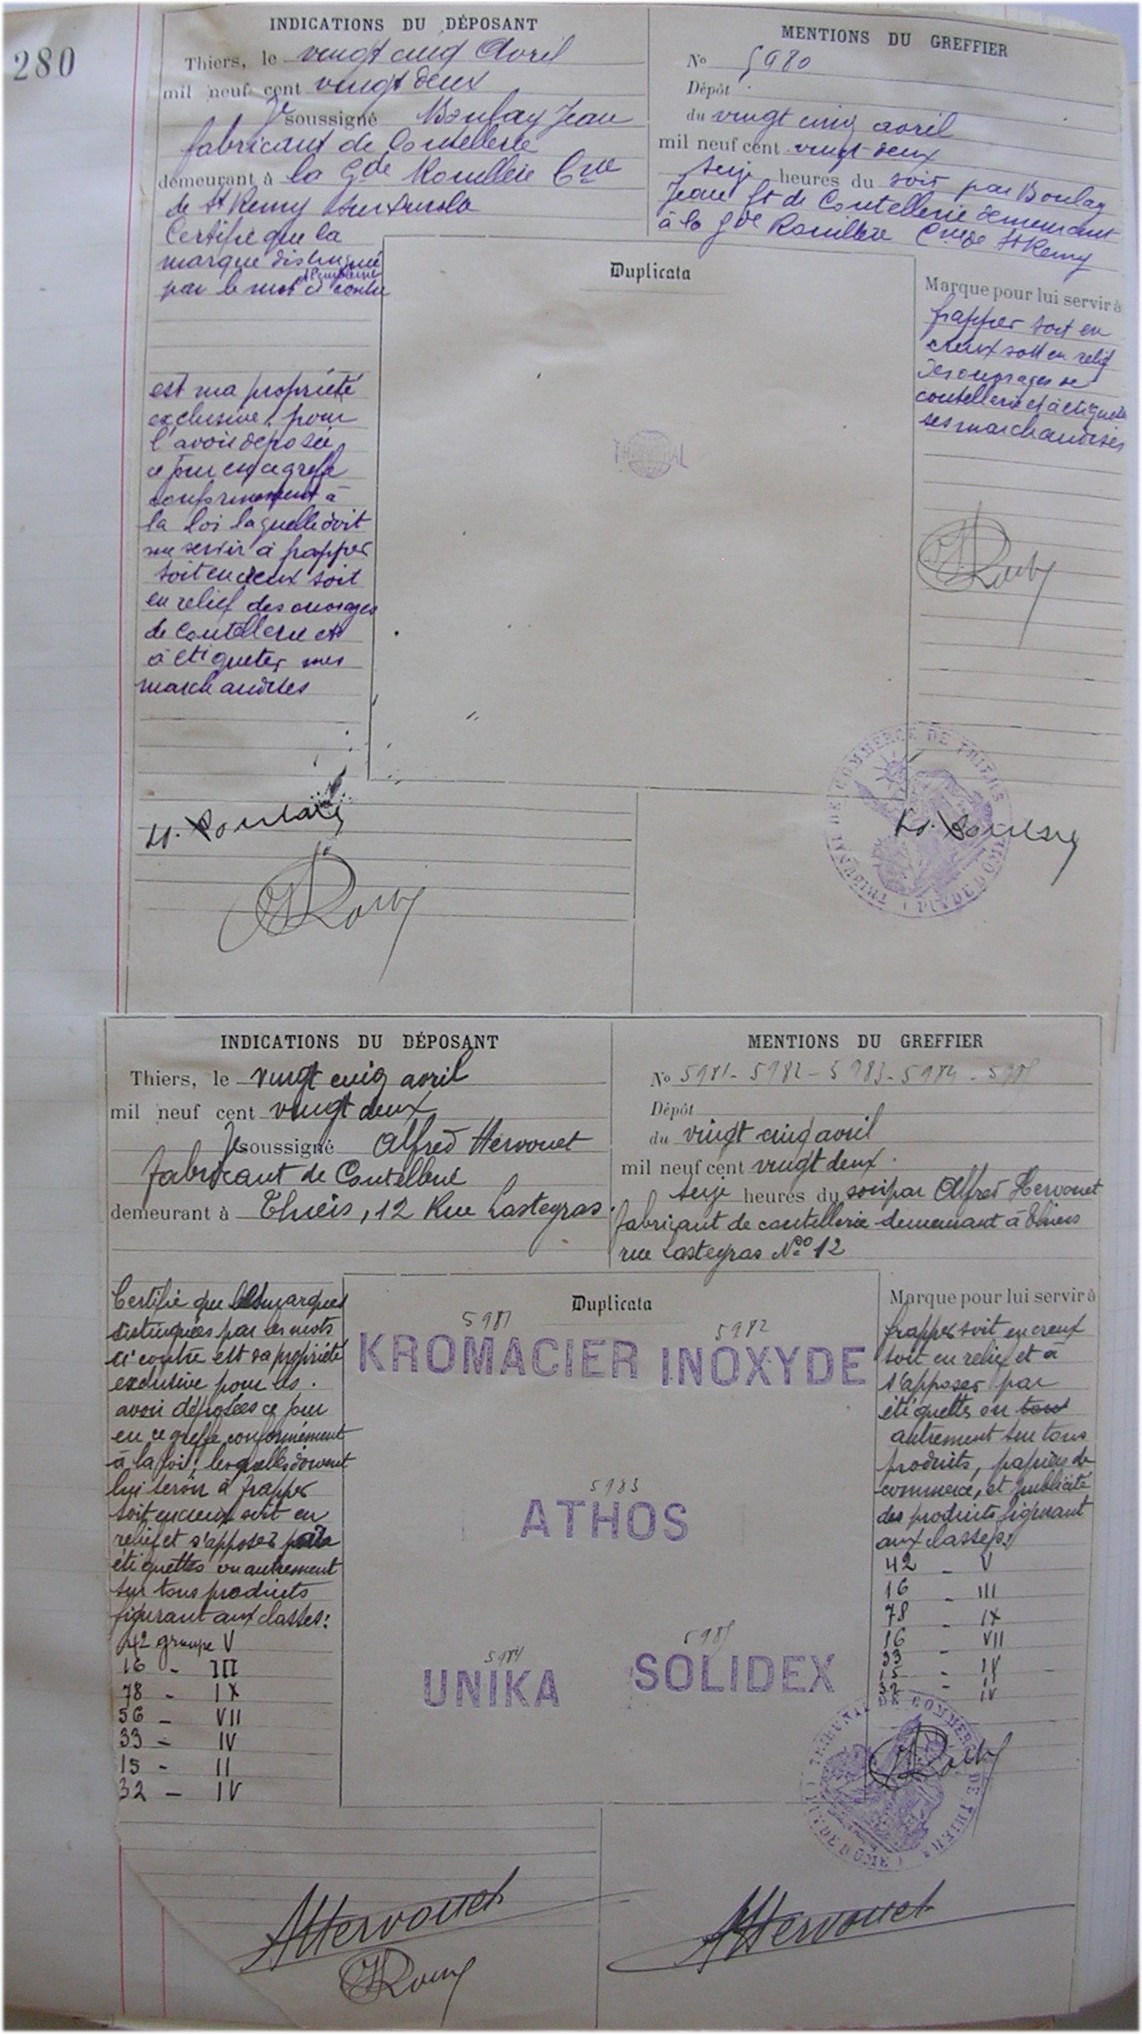 280
INDICATIONS DU DÉPOSANT
Thiers, le vingt cinq Avril
mil neuf cent vingt deux
Je soussigné Boulay Jean
fabricant de Coutellerie
demeurant à la Gde Rouillère Cne
de St Remy sur Durolle
Certifie que la
marque distingué
par le mot ci contre
est ma propriété
exclusive, pour
l'avoir déposée
ce jour en ce greffe
conformément à
la loi laquelle doit
me servir à frapper
soit en creux soit
en relief des ouvrages
de coutellerie et
à étiqueter mes
marchandises
MENTIONS DU GREFFIER
No 5980
Dépôt
du vingt cinq avril
mil neuf cent vingt deux
seize heures du soir par Boulay
Jean ft de Coutellerie demeurant
à la Gde Rouillère Cne de St Remy
Duplicata
Marque pour lui servir à
frapper soit en
creux soit en relief
des ouvrages de
coutellerie et à étiqueter
ses marchandises
TRIBUNAL DE COMMERCE DE THIERS
(PUY DE DOME)
INDICATIONS DU DÉPOSANT
Thiers, le vingt cinq avril
mil neuf cent vingt deux
Je soussigné Alfred Hervouet
fabricant de Coutellerie
demeurant à Thiers, 12 Rue Lasteyras
Certifie que les marques
distinguées par les mots
ci contre est sa propriété
exclusive pour les
avoir déposées ce jour
en ce greffe conformément
à la loi; lesquelles doivent
lui servir à frapper
soit en creux soit en
relief et s'apposer par
étiquettes ou autrement
sur tous produits
figurant aux classes:
42 groupe V
16 - III
78 - IX
56 - VII
33 - IV
15 - II
32 - IV
MENTIONS DU GREFFIER
No 5981 - 5982 - 5983 - 5984 - 5985
Dépôt
du vingt cinq avril
mil neuf cent vingt deux
seize heures du soir par Alfred Hervouet
fabricant de coutellerie demeurant à Thiers
rue Lasteyras No 12
Duplicata
5981 5982
KROMACIER INOXYDE
5983
ATHOS
5984 5985
UNIKA SOLIDEX
Marque pour lui servir à
frapper soit en creux
soit en relief et à
s'apposer par
étiquettes ou tout
autrement sur tous
produits, papiers de
commerce, et publicité
des produits figurant
aux classes:
42 - V
16 - III
78 - IX
16 - VII
33 - IV
15 -
32 - IV
TRIBUNAL DE COMMERCE DE THIERS
(PUY DE DOME)
AHervouet
AHervouet